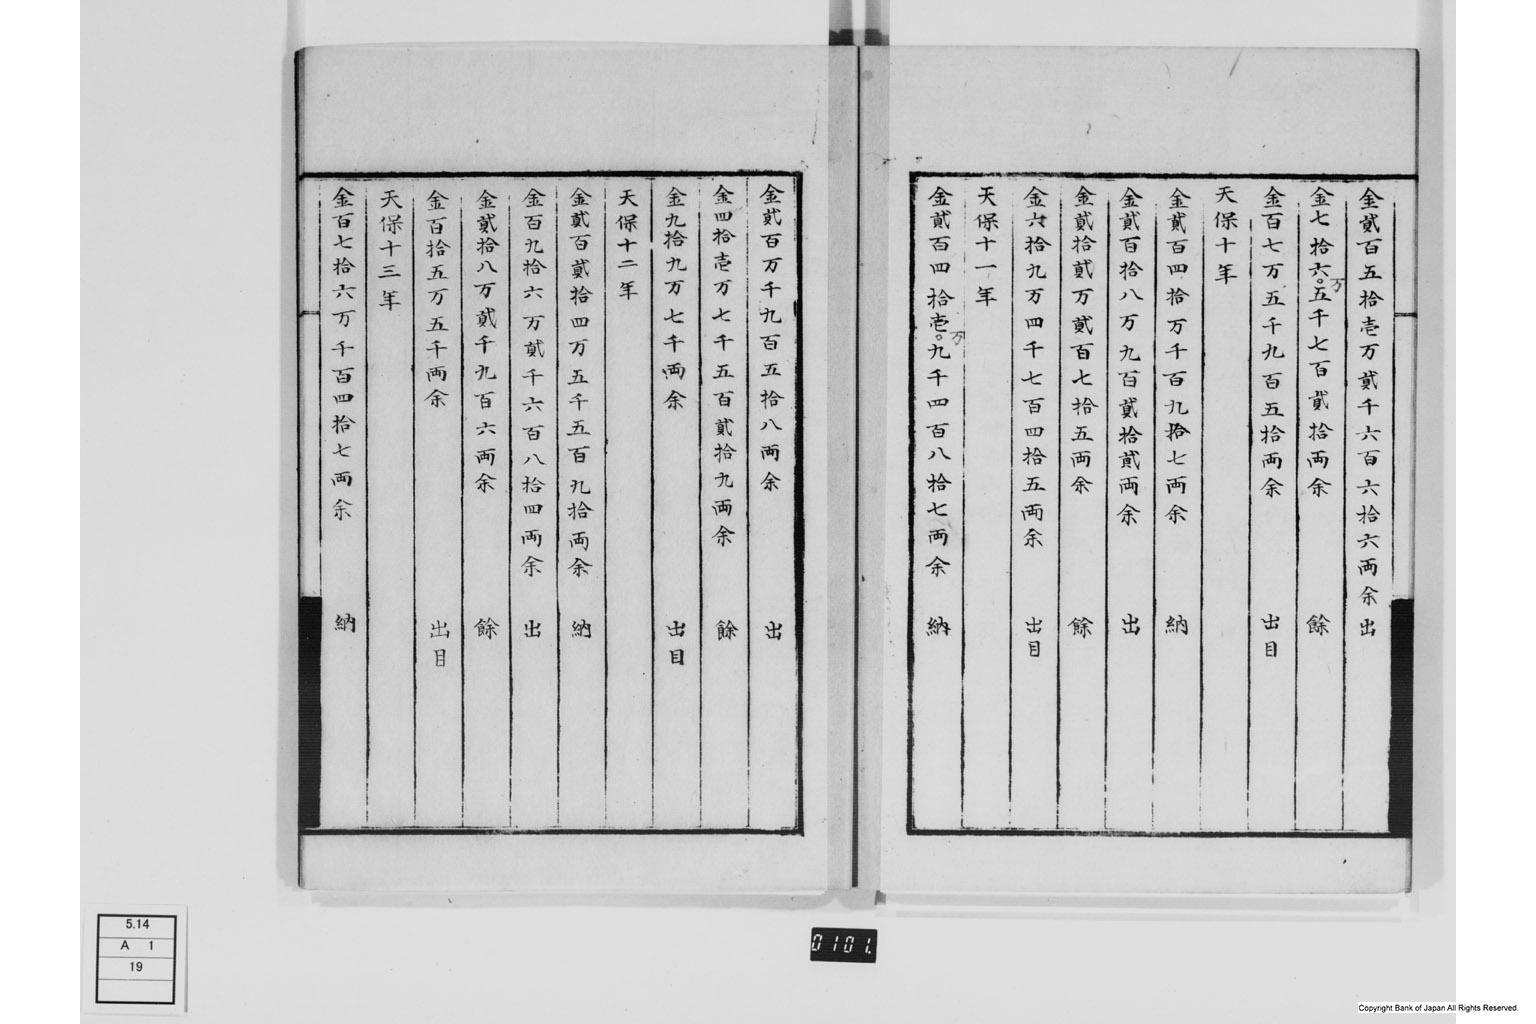 金貳百五拾壱万貳千六百六拾六両余 出
金七拾六。万五千七百貳拾両余 餘
金百七万五千九百五拾両余 出目
天保十年
金貳百四拾万千百九拾七両余 納
金貳百拾八万九百貳拾貳両余 出
金貳拾貳万貳百七拾五両余 餘
金六拾九万四千七百四拾五両余 出目
天保十一年
金貳百四拾壱。万九千四百八拾七両余 納
金貳百万千九百五拾八両余 出
金四拾壱万七千五百貳拾九両余 餘
金九拾九万七千両余 出目
天保十二年
金貳百貳拾四万五千五百九拾両余 納
金百九拾六万貳千六百八拾四両余 出
金貳拾八万貳千九百六両余 餘
金百拾五万五千両余 出目
天保十三年
金百七拾六万千百四拾七両余 納
5.14
A 1
19
0101.
Copyright Bank of Japan All Rights Reserved.